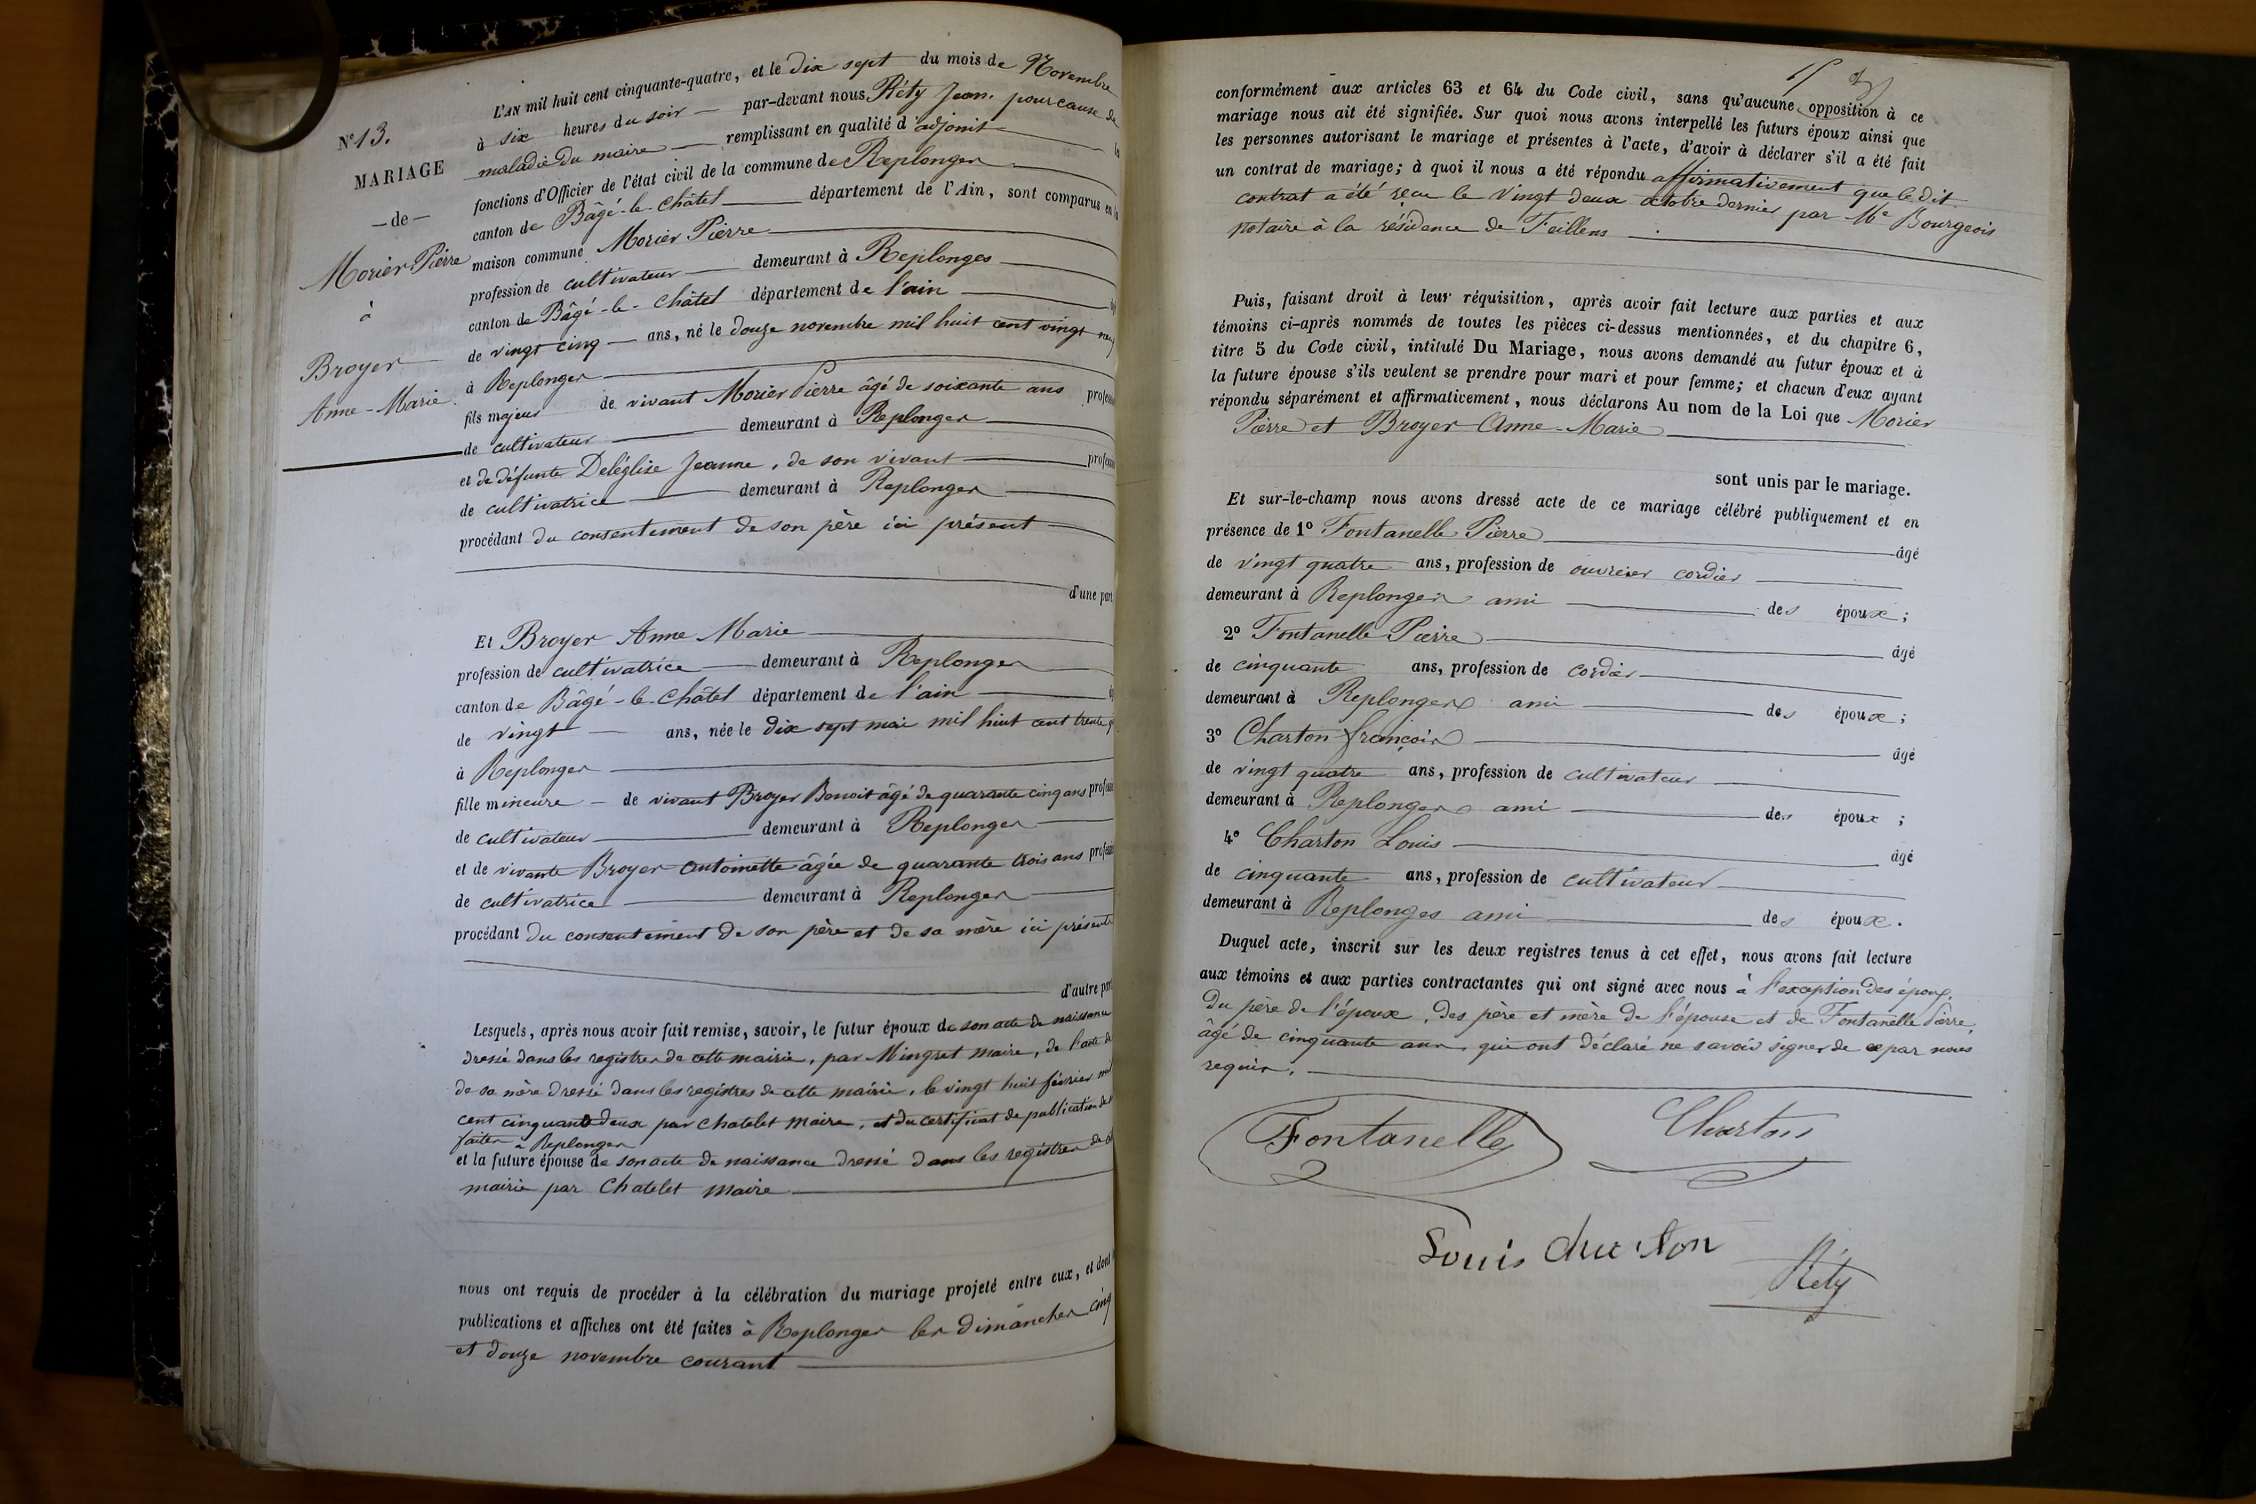 N° 13.
MARIAGE
— de —
Morier Pierre
à
Broyer
Anne-Marie
L'AN mil huit cent cinquante-quatre, et le dix sept du mois de Novembre
à six heures du soir par-devant nous Réty Jean, pour cause de
maladie du maire remplissant en qualité d'adjoint les
fonctions d'Officier de l'état civil de la commune de Replonges
canton de Bâgé-le-Châtel département de l'Ain, sont comparus en la
maison commune Morier Pierre
profession de cultivateur demeurant à Replonges
canton de Bâgé-le-Châtel département de l'ain
de vingt cinq ans, né le douze novembre mil huit cent vingt neuf
à Replonges
fils majeur de vivant Morier Pierre âgé de soixante ans profession
de cultivateur demeurant à Replonges
et de défunte Deléglise Jeanne, de son vivant profession
de cultivatrice demeurant à Replonges
procédant du consentement de son père ici présent
d'une part
Et Broyer Anne Marie
profession de cultivatrice demeurant à Replonges
canton de Bâgé-le-Châtel département de l'ain
de vingt ans, née le dix sept mai mil huit cent trente
à Replonges
fille mineure de vivant Broyer Benoit âgé de quarante cinq ans profession
de cultivateur demeurant à Replonges
et de vivante Broyer Antoinette âgée de quarante trois ans profession
de cultivatrice demeurant à Replonges
procédant du consentement de son père et de sa mère ici présents
d'autre part
Lesquels, après nous avoir fait remise, savoir, le futur époux de son acte de naissance
dressé dans les registres de cette mairie, par Mingret maire, de l'acte de
de sa mère dressé dans les registres de cette mairie, le vingt huit février mil
cent cinquante deux par Chatelet maire, et du certificat de publication
faites à Replonges
et la future épouse de son acte de naissance dressé dans les registres de
mairie par Chatelet maire
nous ont requis de procéder à la célébration du mariage projeté entre eux, et dont
publications et affiches ont été faites à Replonges les dimanches cinq
et douze novembre courant
conformément aux articles 63 et 64 du Code civil, sans qu'aucune opposition à ce
mariage nous ait été signifiée. Sur quoi nous avons interpellé les futurs époux ainsi que
les personnes autorisant le mariage et présentes à l'acte, d'avoir à déclarer s'il a été fait
un contrat de mariage; à quoi il nous a été répondu affirmativement que le dit
contrat a été reçu le vingt deux octobre dernier par Me Bourgeois
notaire à la résidence de Feillens
Puis, faisant droit à leur réquisition, après avoir fait lecture aux parties et aux
témoins ci-après nommés de toutes les pièces ci-dessus mentionnées, et du chapitre 6,
titre 5 du Code civil, intitulé Du Mariage, nous avons demandé au futur époux et à
la future épouse s'ils veulent se prendre pour mari et pour femme; et chacun d'eux ayant
répondu séparément et affirmativement, nous déclarons Au nom de la Loi que Morier
Pierre et Broyer Anne-Marie
sont unis par le mariage.
Et sur-le-champ nous avons dressé acte de ce mariage célébré publiquement et en
présence de 1° Fontanelle Pierre âgé
de vingt quatre ans, profession de ouvrier cordier
demeurant à Replonges ami des époux;
2° Fontanelle Pierre âgé
de cinquante ans, profession de cordier
demeurant à Replonges ami des époux;
3° Charton françois âgé
de vingt quatre ans, profession de cultivateur
demeurant à Replonges ami des époux;
4° Charton Louis âgé
de cinquante ans, profession de cultivateur
demeurant à Replonges ami des époux.
Duquel acte, inscrit sur les deux registres tenus à cet effet, nous avons fait lecture
aux témoins et aux parties contractantes qui ont signé avec nous à l'exception des époux,
du père de l'époux, des père et mère de l'épouse et de Fontanelle Pierre,
âgé de cinquante ans, qui ont déclaré ne savoir signer de ce par nous
requis.
Fontanelle
Charton
Louis charton
Réty